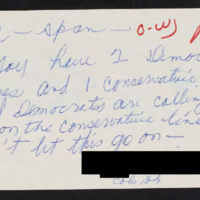 - span - O-W
have 2 Democ
es and 1 conservative
Democrats are calling
on the conservative line
't let this go on -